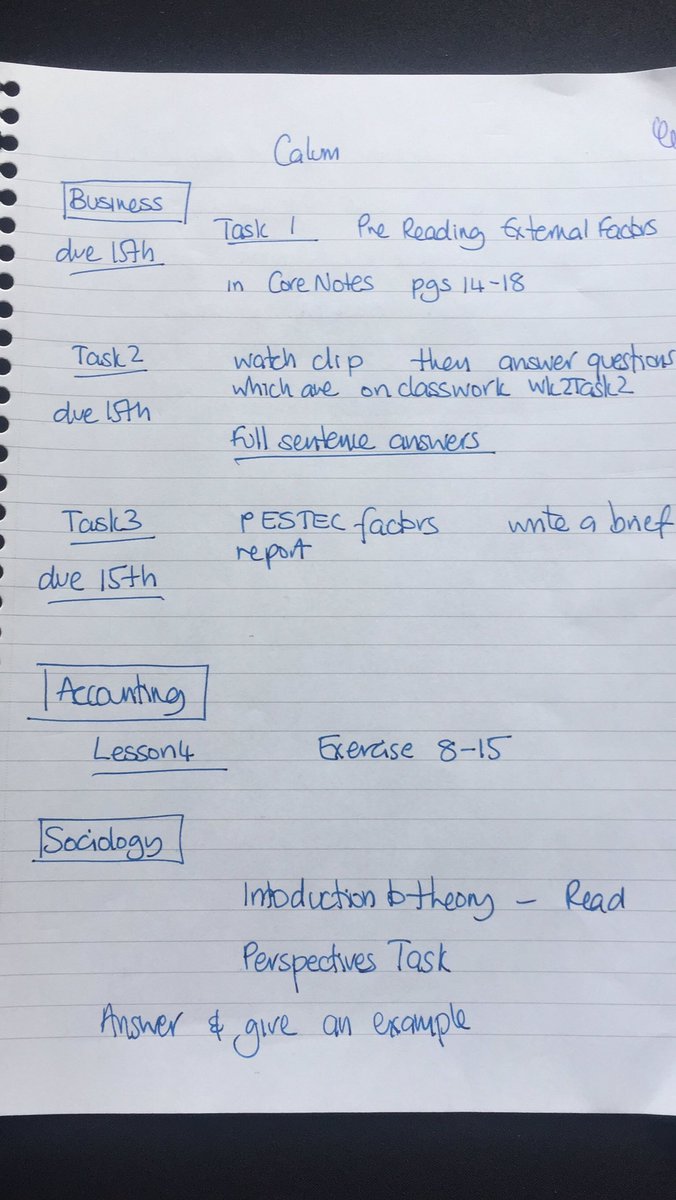 Calum
Business
due 15th
Task 1 Pre Reading External Factors
in Core Notes pgs 14-18
Task 2 watch clip then answer questions
which are on classwork Wk2Task2
due 15th
Full sentence answers
Task3 PESTEC factors write a brief
report
due 15th
Accounting
Lesson 4 Exercise 8-15
Sociology
Intoduction to theory - Read
Perspectives Task
Answer & give an example